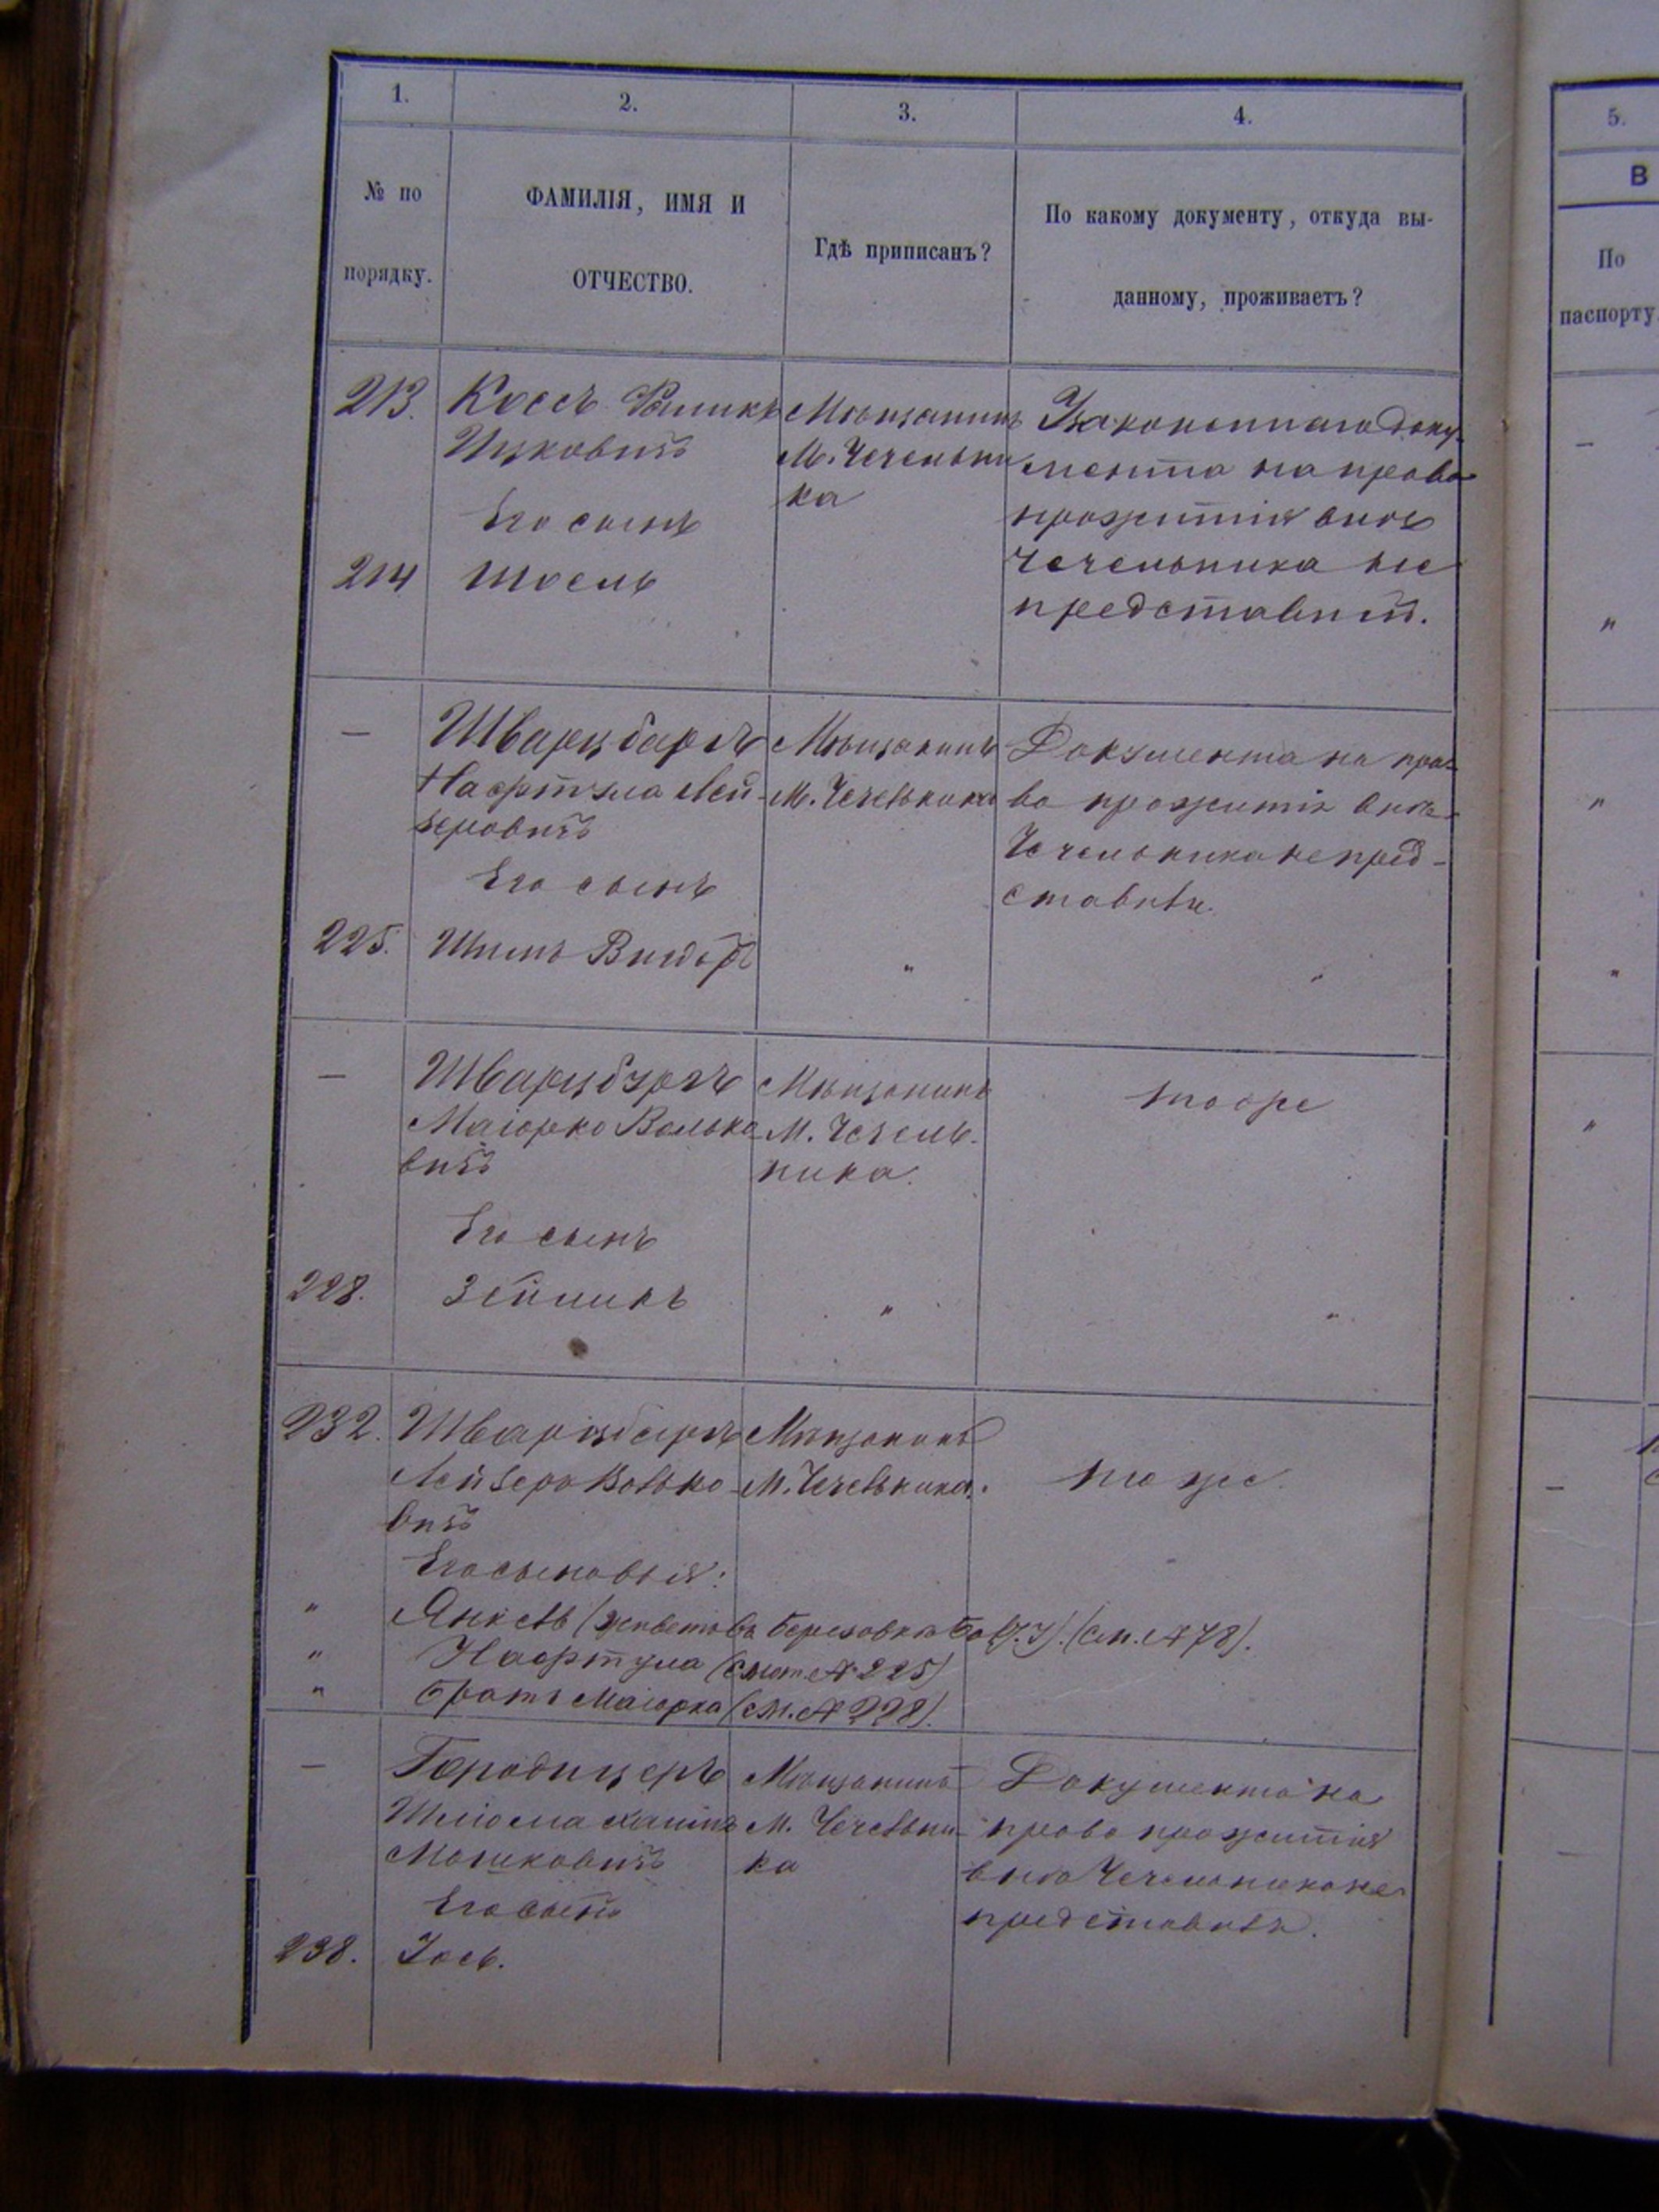 1.
2.
3.
4.
№ по
порядку.
ФАМИЛІЯ, ИМЯ И
ОТЧЕСТВО.
Гдѣ приписанъ?
По какому документу, откуда вы-
данному, проживаетъ?
213.
Коссъ
Ицковичъ
Его сынъ
214
Шоель
Мѣщанинъ
М. Чечельни
ка
Законнаго доку-
мента на право
прожитія внѣ
Чечельника не
представилъ.
—
Шварцбаргъ
Нафтула Лей-
зеровичъ
Его сынъ
225.
Шмиль
Мѣщанинъ
М. Чечельника
"
Документа на пра-
во прожитія внѣ
Чечельника не пред-
ставилъ.
"
—
Шварцбургъ
Маіорко Волько
вичъ
Его сынъ
228.
Зейликъ
Мѣщанинъ
М. Чечель-
ника.
"
тоже
"
232.
Шварцбаргъ
Лейзеръ Волько-
вичъ
Его сыновья:
" Янкель (живетъ въ Березовкѣ Балт. у.). (см. № 78).
" Нафтула (смот. № 225)
" братъ Маіорка (см. № 228).
Мѣщанинъ
М. Чечельника.
тоже.
—
Городецеръ
Шліома Хаимъ
Мошковичъ
Его сынъ
238.
Іось.
Мѣщанинъ
М. Чечельни-
ка
Документа на
право прожитія
внѣ Чечельника не
представилъ.
5.
В
По
паспорту
—
"
"
"
"
—
—